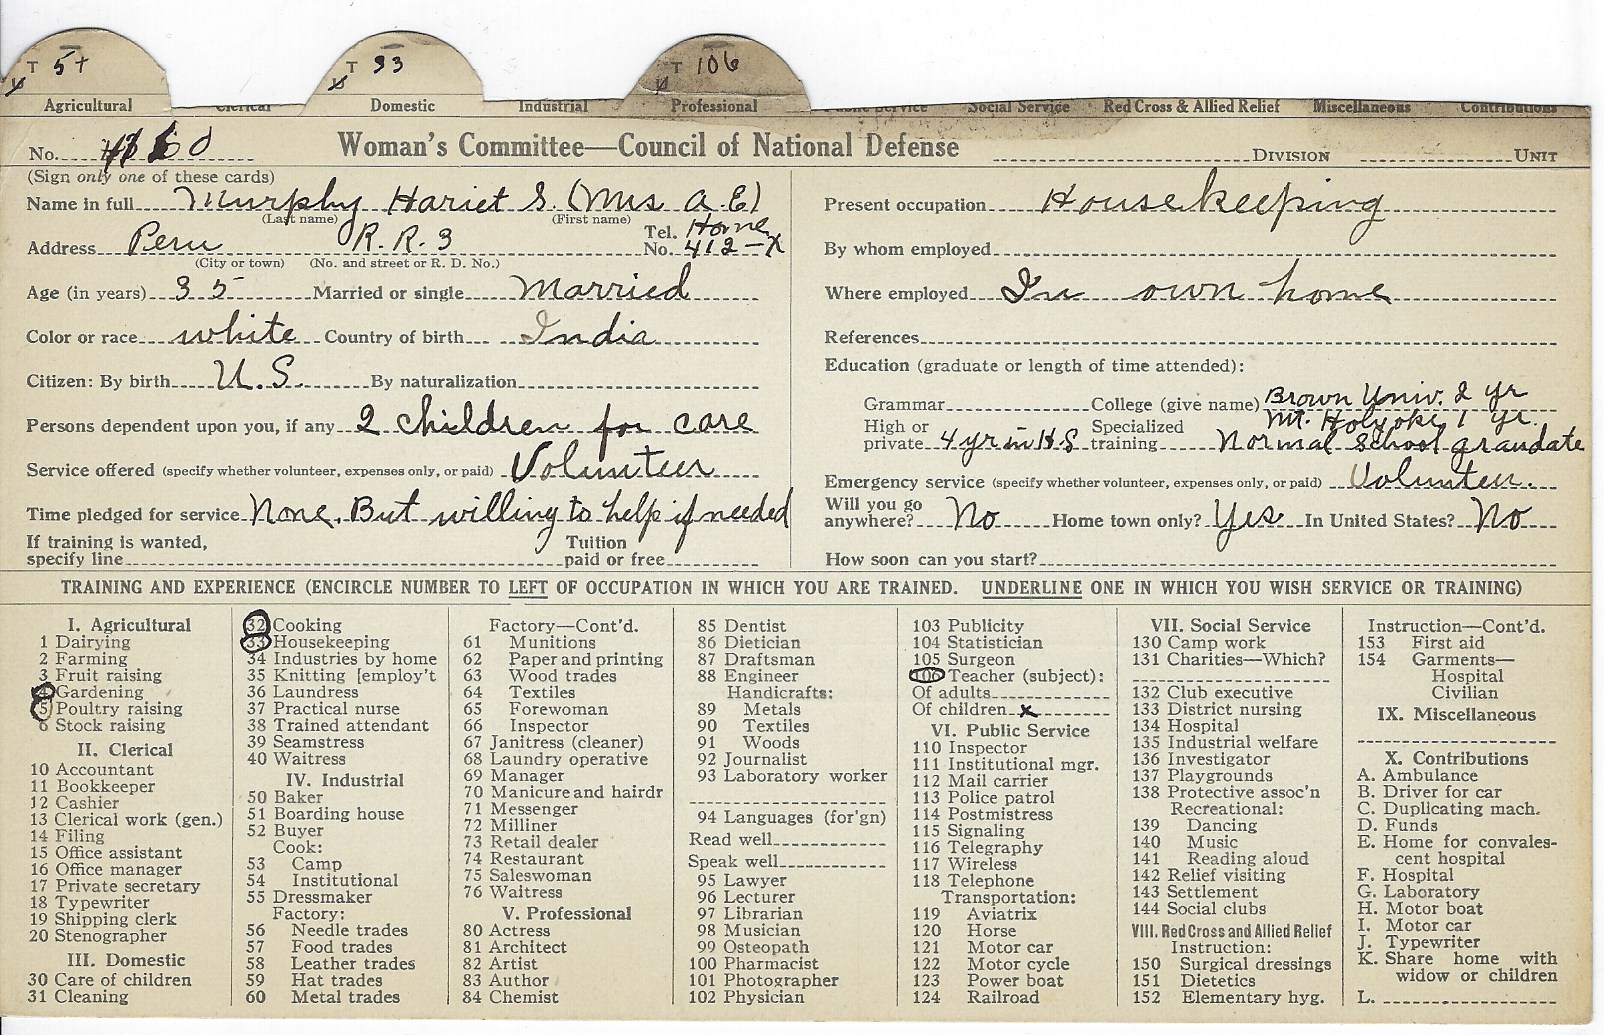 T 5+ T 33 T 106
Agricultural Clerical Domestic Industrial Professional Public Service Social Service Red Cross & Allied Relief Miscellaneous Contributions
No. Woman's Committee—Council of National Defense DIVISION UNIT
(Sign only one of these cards)
Name in full Murphy Hariet S. (Mrs A. E)
(Last name) (First name)
Address Peru R. R. 3 Tel. No. Home 412-X
(City or town) (No. and street or R. D. No.)
Age (in years) 35 Married or single Married
Color or race white Country of birth India
Citizen: By birth U.S. By naturalization
Persons dependent upon you, if any 2 children for care
Service offered (specify whether volunteer, expenses only, or paid) Volunteer
Time pledged for service None. But willing to help if needed
If training is wanted, specify line Tuition paid or free
Present occupation Housekeeping
By whom employed
Where employed In own home
References
Education (graduate or length of time attended):
Grammar College (give name) Brown Univ. 2 yr
Mt. Holyoke 1 yr.
High or private 4 yr in H.S Specialized training Normal School graudate
Emergency service (specify whether volunteer, expenses only, or paid) Volunteer.
Will you go anywhere? No Home town only? Yes In United States? No
How soon can you start?
TRAINING AND EXPERIENCE (ENCIRCLE NUMBER TO LEFT OF OCCUPATION IN WHICH YOU ARE TRAINED. UNDERLINE ONE IN WHICH YOU WISH SERVICE OR TRAINING)
I. Agricultural
1 Dairying
2 Farming
3 Fruit raising
4 Gardening
5 Poultry raising
6 Stock raising
II. Clerical
10 Accountant
11 Bookkeeper
12 Cashier
13 Clerical work (gen.)
14 Filing
15 Office assistant
16 Office manager
17 Private secretary
18 Typewriter
19 Shipping clerk
20 Stenographer
III. Domestic
30 Care of children
31 Cleaning
32 Cooking
33 Housekeeping
34 Industries by home
35 Knitting [employ't
36 Laundress
37 Practical nurse
38 Trained attendant
39 Seamstress
40 Waitress
IV. Industrial
50 Baker
51 Boarding house
52 Buyer
Cook:
53 Camp
54 Institutional
55 Dressmaker
Factory:
56 Needle trades
57 Food trades
58 Leather trades
59 Hat trades
60 Metal trades
Factory—Cont'd.
61 Munitions
62 Paper and printing
63 Wood trades
64 Textiles
65 Forewoman
66 Inspector
67 Janitress (cleaner)
68 Laundry operative
69 Manager
70 Manicure and hairdr
71 Messenger
72 Milliner
73 Retail dealer
74 Restaurant
75 Saleswoman
76 Waitress
V. Professional
80 Actress
81 Architect
82 Artist
83 Author
84 Chemist
85 Dentist
86 Dietician
87 Draftsman
88 Engineer
Handicrafts:
89 Metals
90 Textiles
91 Woods
92 Journalist
93 Laboratory worker
94 Languages (for'gn)
Read well
Speak well
95 Lawyer
96 Lecturer
97 Librarian
98 Musician
99 Osteopath
100 Pharmacist
101 Photographer
102 Physician
103 Publicity
104 Statistician
105 Surgeon
106 Teacher (subject):
Of adults
Of children x
VI. Public Service
110 Inspector
111 Institutional mgr.
112 Mail carrier
113 Police patrol
114 Postmistress
115 Signaling
116 Telegraphy
117 Wireless
118 Telephone
Transportation:
119 Aviatrix
120 Horse
121 Motor car
122 Motor cycle
123 Power boat
124 Railroad
VII. Social Service
130 Camp work
131 Charities—Which?
132 Club executive
133 District nursing
134 Hospital
135 Industrial welfare
136 Investigator
137 Playgrounds
138 Protective assoc'n
Recreational:
139 Dancing
140 Music
141 Reading aloud
142 Relief visiting
143 Settlement
144 Social clubs
VIII. Red Cross and Allied Relief
Instruction:
150 Surgical dressings
151 Dietetics
152 Elementary hyg.
Instruction—Cont'd.
153 First aid
154 Garments—
Hospital
Civilian
IX. Miscellaneous
X. Contributions
A. Ambulance
B. Driver for car
C. Duplicating mach.
D. Funds
E. Home for convales-
cent hospital
F. Hospital
G. Laboratory
H. Motor boat
I. Motor car
J. Typewriter
K. Share home with
widow or children
L.